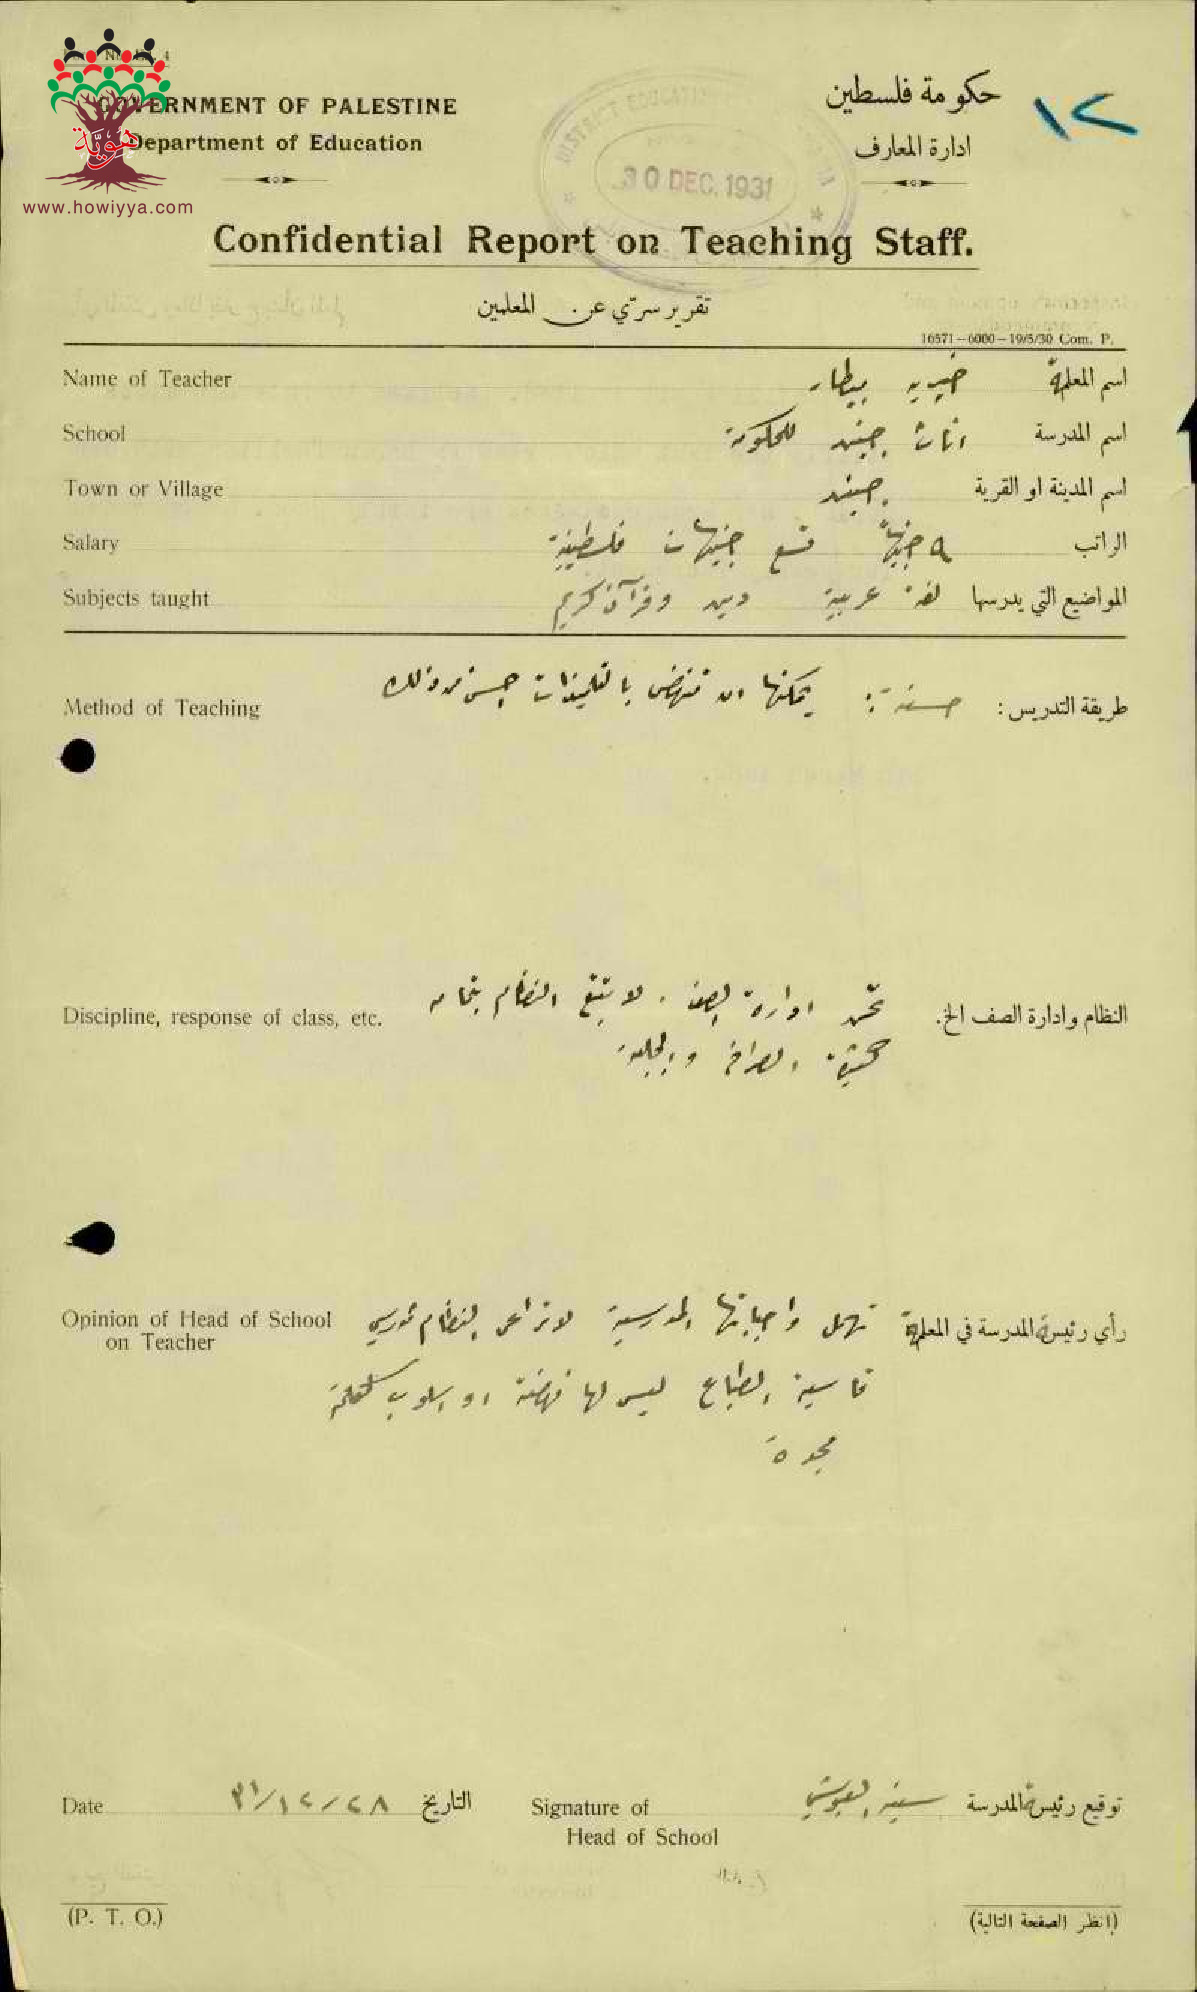 GOVERNMENT OF PALESTINE
Department of Education
هويّة
www.howiyya.com
حكومة فلسطين
ادارة المعارف
١٢
DISTRICT EDUCATION
30 DEC. 1931
Confidential Report on Teaching Staff.
تقرير سرّي عن المعلمين
16571—6000—19/5/30 Com. P.
Name of Teacher خيريه بيطار اسم المعلمة
School اناث جنين للحكومة اسم المدرسة
Town or Village جنين اسم المدينة او القرية
Salary ٩ جنيهاً تسع جنيهات فلسطينية الراتب
Subjects taught لغة عربية دين وقرآن كريم المواضيع التي يدرسها
Method of Teaching حسنة: يمكنها ان تنهض بالتلميذات احسن من ذلك طريقة التدريس :
Discipline, response of class, etc. ادارة الصف . لا يتبع النظام بتمامه النظام وادارة الصف الخ.
كثيرة الصراخ والجلبة
Opinion of Head of School on Teacher تهمل واجباتها المدرسية لا تراعي النظام رأي رئيسة المدرسة في المعلمة
قاسية الطباع ليس لها نهضة او اسلوب كمعلمة
Date ٣١/١٢/٢٨ التاريخ Signature of Head of School توقيع رئيسة المدرسة
(P. T. O.) (انظر الصفحة التالية)